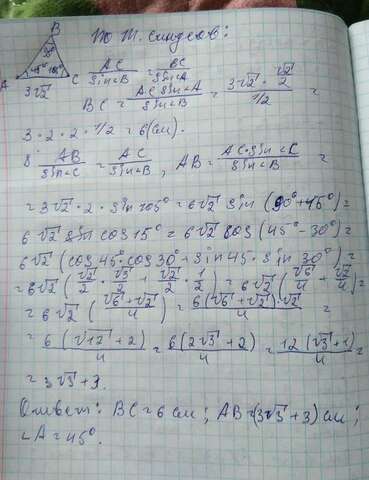 По т. синусов:
B
30°
A 45° 105° C
3√2
AC / sin<B = BC / sin<A
BC = AC sin<A / sin<B = 3√2 · √2/2 / 1/2 =
3 · 2 · 2 · 1/2 = 6 (см).
AB / sin<C = AC / sin<B , AB = AC · sin<C / sin<B =
= 3√2 · 2 · sin 105° = 6√2 sin (90° + 15°) =
6√2 cos 15° = 6√2 cos (45° - 30°) =
6√2 (cos 45° · cos 30° + sin 45 · sin 30°) =
= 6√2 (√2/2 · √3/2 + √2/2 · 1/2) = 6√2 (√6/4 + √2/4) =
= 6√2 (√6 + √2 / 4) = 6(√6 + √2) · √2 / 4 =
= 6 (√12 + 2) / 4 = 6(2√3 + 2) / 4 = 12 (√3 + 1) / 4 =
= 3√3 + 3.
Ответ: BC = 6 см; AB = (3√3 + 3) см;
<A = 45°.